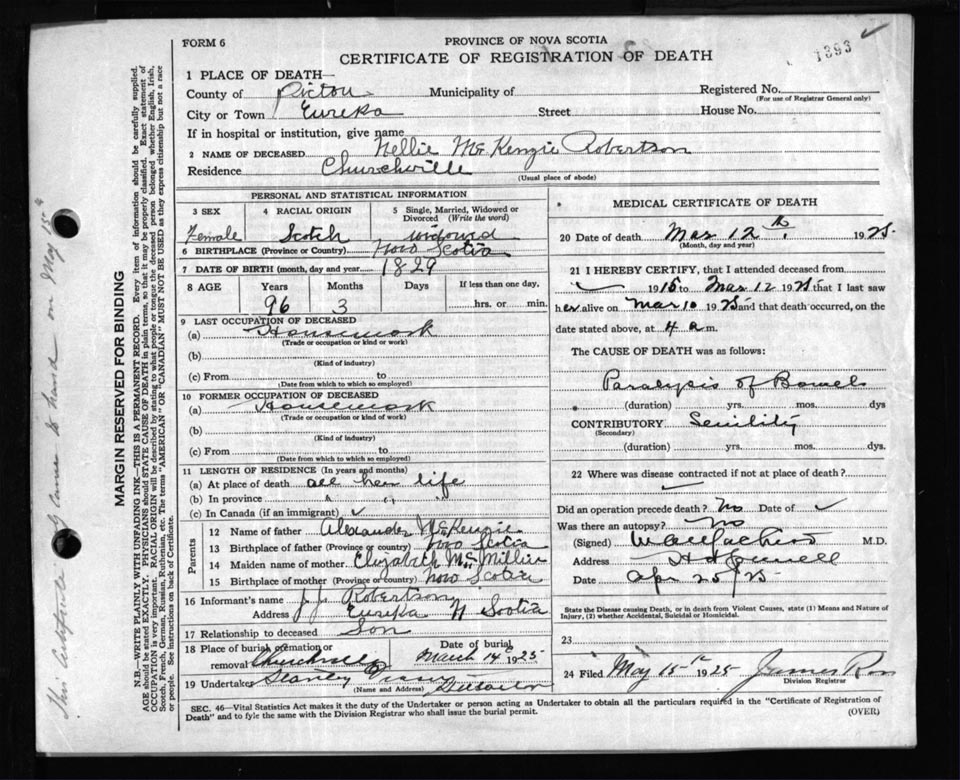 FORM 6
PROVINCE OF NOVA SCOTIA
1393
CERTIFICATE OF REGISTRATION OF DEATH
1 PLACE OF DEATH—
County of Pictou Municipality of Registered No.
(For use of Registrar General only)
City or Town Eureka Street House No.
If in hospital or institution, give name
2 NAME OF DECEASED Nellie McKenzie Robertson
Residence Churchville
(Usual place of abode)
PERSONAL AND STATISTICAL INFORMATION
3 SEX 4 RACIAL ORIGIN 5 Single, Married, Widowed or Divorced (Write the word)
Female Scotch Widowed
6 BIRTHPLACE (Province or Country) Nova Scotia
7 DATE OF BIRTH (month, day and year) 1829
8 AGE Years Months Days If less than one day,
96 3 hrs. or min.
9 LAST OCCUPATION OF DECEASED
(a) Housework
(Trade or occupation or kind or work)
(b)
(Kind of industry)
(c) From to
(Date from which to which so employed)
10 FORMER OCCUPATION OF DECEASED
(a) Housework
(Trade or occupation or kind of work)
(b)
(Kind of industry)
(c) From to
(Date from which to which so employed)
11 LENGTH OF RESIDENCE (In years and months)
(a) At place of death all her life
(b) In province " " "
(c) In Canada (if an immigrant) ✓
Parents
12 Name of father Alexander McKenzie
13 Birthplace of father (Province or country) Nova Scotia
14 Maiden name of mother Elizabeth McMillan
15 Birthplace of mother (Province or country) Nova Scotia
16 Informant's name J. J. Robertson
Address Eureka N Scotia
17 Relationship to deceased Son
18 Place of burial cremation or removal Churchville
Date of burial March 14th 1925
19 Undertaker Stanley
(Name and Address)
MEDICAL CERTIFICATE OF DEATH
20 Date of death Mar 12th 1925
(Month, day and year)
21 I HEREBY CERTIFY, that I attended deceased from
✓ 1915 to Mar 12 1925 that I last saw
her alive on Mar 10 1925 and that death occurred, on the
date stated above, at 4 a m.
The CAUSE OF DEATH was as follows:
Paralysis of Bowels
(duration) yrs. mos. dys
CONTRIBUTORY Senility
(Secondary)
(duration) yrs. mos. dys.
22 Where was disease contracted if not at place of death?
✓
Did an operation precede death? No Date of ✓
Was there an autopsy? No
(Signed) M.D.
Address
Date Apr 25/25
State the Disease causing Death, or in death from Violent Causes, state (1) Means and Nature of Injury, (2) whether Accidental, Suicidal or Homicidal.
23
24 Filed May 15th 1925 James Ross
Division Registrar
SEC. 46—Vital Statistics Act makes it the duty of the Undertaker or person acting as Undertaker to obtain all the particulars required in the "Certificate of Registration of
Death" and to fyle the same with the Division Registrar who shall issue the burial permit.
(OVER)
MARGIN RESERVED FOR BINDING
N.B.—WRITE PLAINLY WITH UNFADING INK—THIS IS A PERMANENT RECORD. Every item of information should be carefully supplied.
AGE should be stated EXACTLY. PHYSICIANS should STATE CAUSE OF DEATH in plain terms, so that it may be properly classified. Exact statement of
OCCUPATION is very important. RACIAL ORIGIN will be described by stating to what people or tongue the deceased person belonged whether English, Irish,
Scotch, French, German, Russian, Ruthenian, etc. The terms "AMERICAN" OR "CANADIAN" MUST NOT BE USED as they express citizenship but not a race
or people. See instructions on back of Certificate.
This certificate came to hand on May 15th